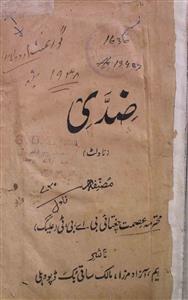 1636
۱۹۴۸
ضدّی
(ناولٹ)
مصنفہ
محترمہ عصمت چغتائی بی۔ اے بی۔ ٹی (علیگ)
ناشر
یم۔ آزاد مرزا، مالک ساقی بک ڈپو دہلی